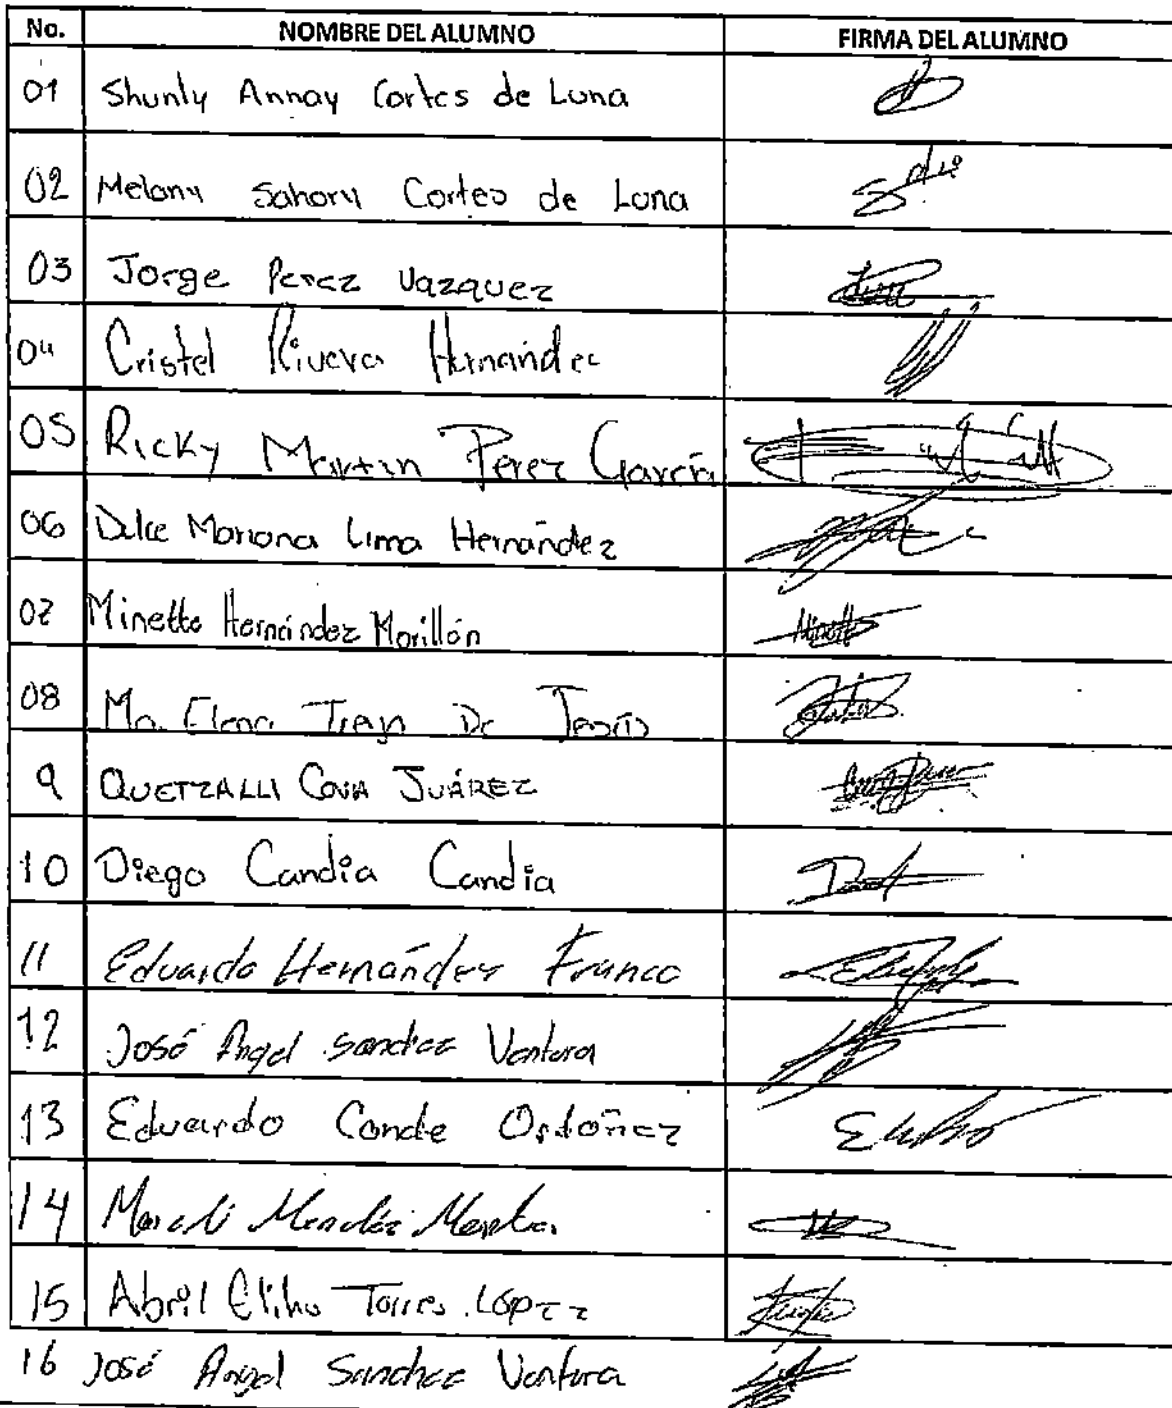 No. NOMBRE DEL ALUMNO FIRMA DEL ALUMNO
01 Shunly Annay Cortes de Luna
02 Melany Sahory Cortes de Luna
03 Jorge Perez Vazquez
04 Cristel Rivera Hernández
05 Ricky Martin Perez García
06 Dulce Mariana Lima Hernández
07 Minette Hernández Morillón Minette
08 Ma. Elena Trejo De Jesús
9 QUETZALLI COVA JUÁREZ
10 Diego Candia Candia
11 Eduardo Hernández Franco
12 José Angel Sanchez Ventura
13 Eduardo Conde Ordoñez
14 Méndez
15 Abril Torres López
16 José Angel Sanchez Ventura